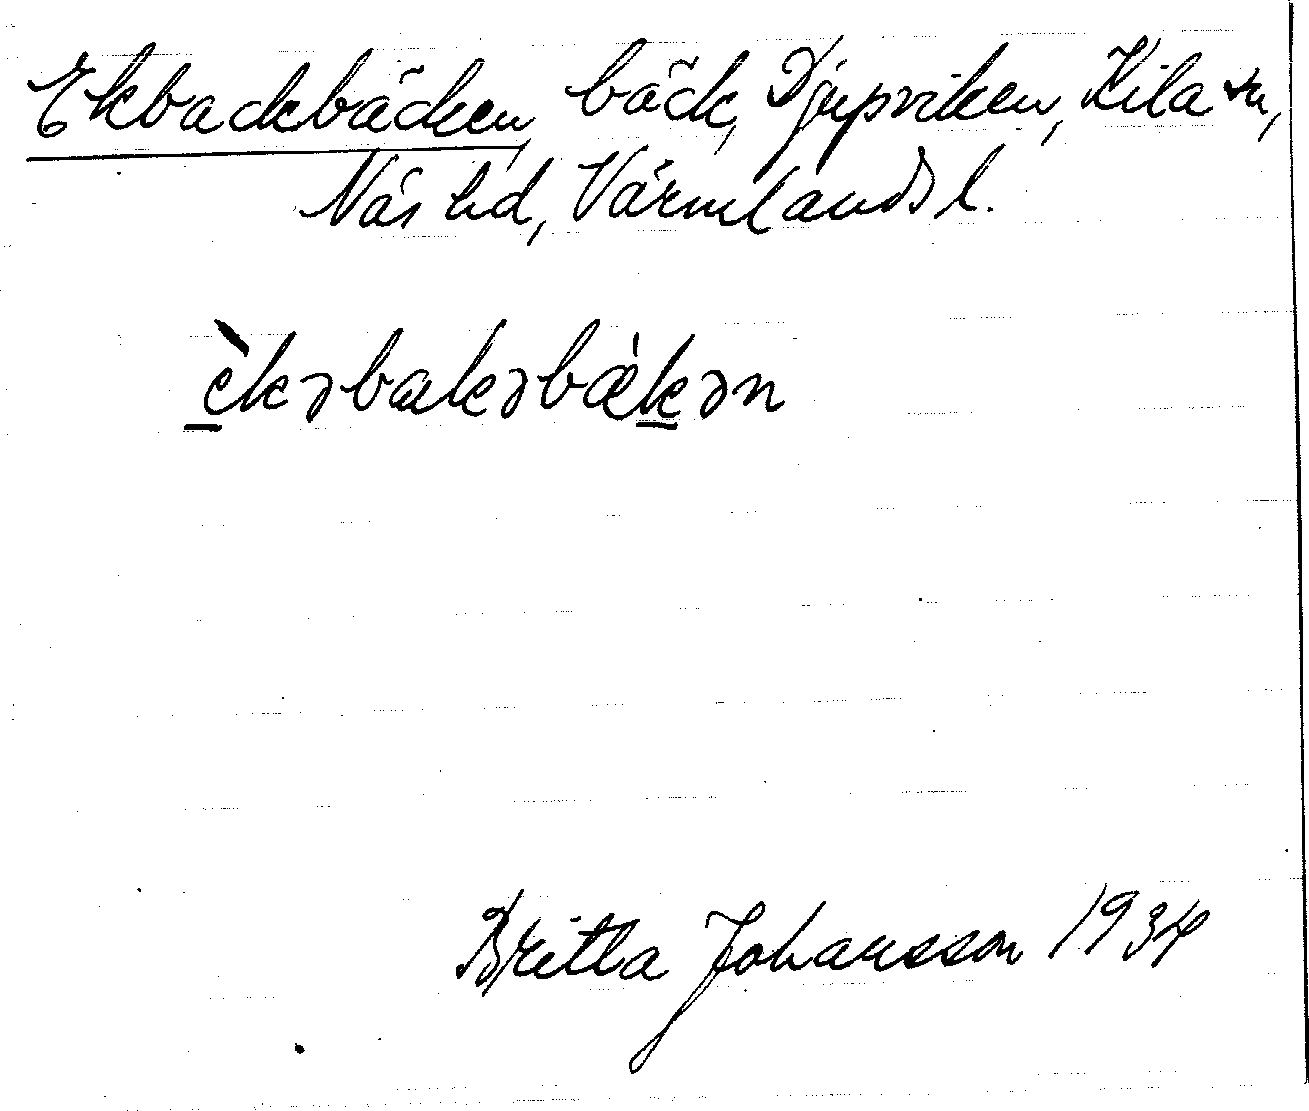 Ekbackbäcken, bäck, Djupviken, Kila sn,
Näs hd, Värmlands l.
èkəbakəbæ̀kən
Britta Johansson 1934